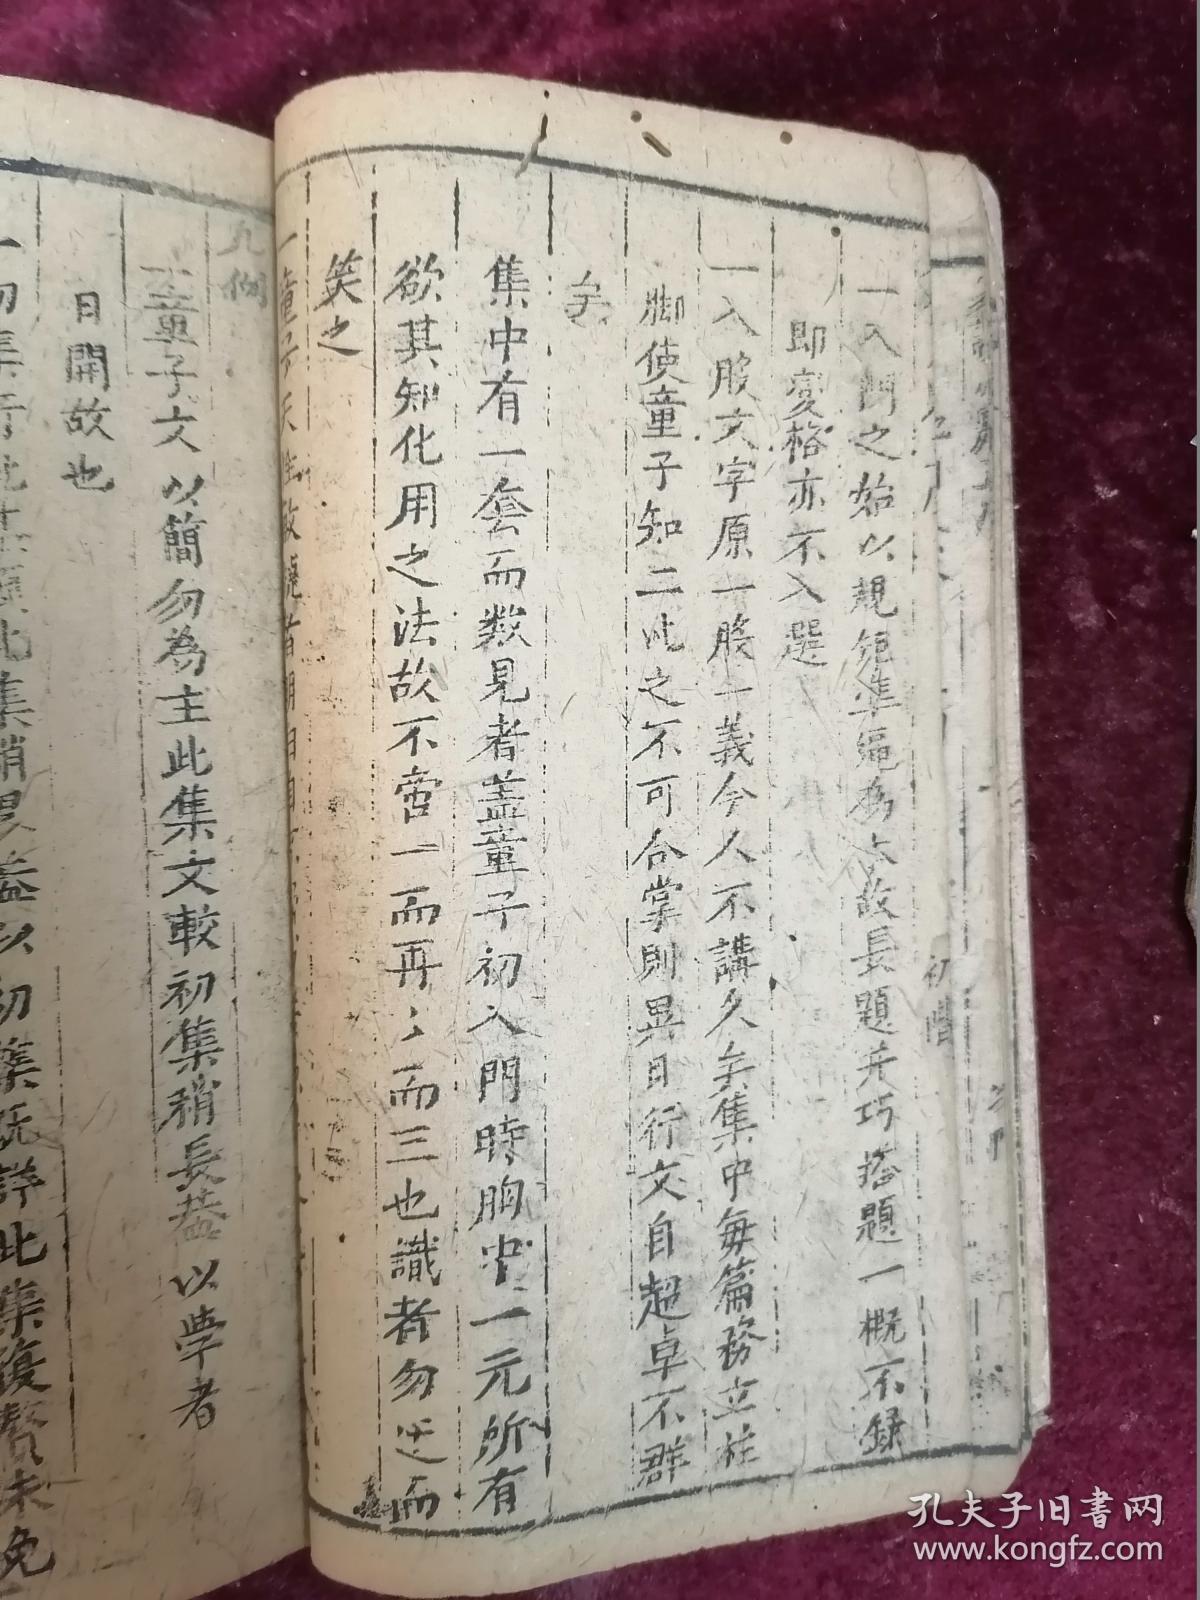 初階
一入門之始以規矩準繩為上故長題并巧搭題一概不録
即变格亦不入選
一入股文字原一股一義今人不講久矣集中每篇務立柱
脚使童子知二比之不可合掌則異日行文自超卓不群
矣
集中有一套而数見者盖童子初入門時胸中一元所有
欲其知化用之法故不啻一而再〻而三也識者勿迂而
笑之
一童子
凡例
一童子文以簡勿為主此集文較初集稍長盖以學者
日開故也
一初集行此集稍盖以初集既詳此集復贅未免
孔夫子旧書网
www.kongfz.com